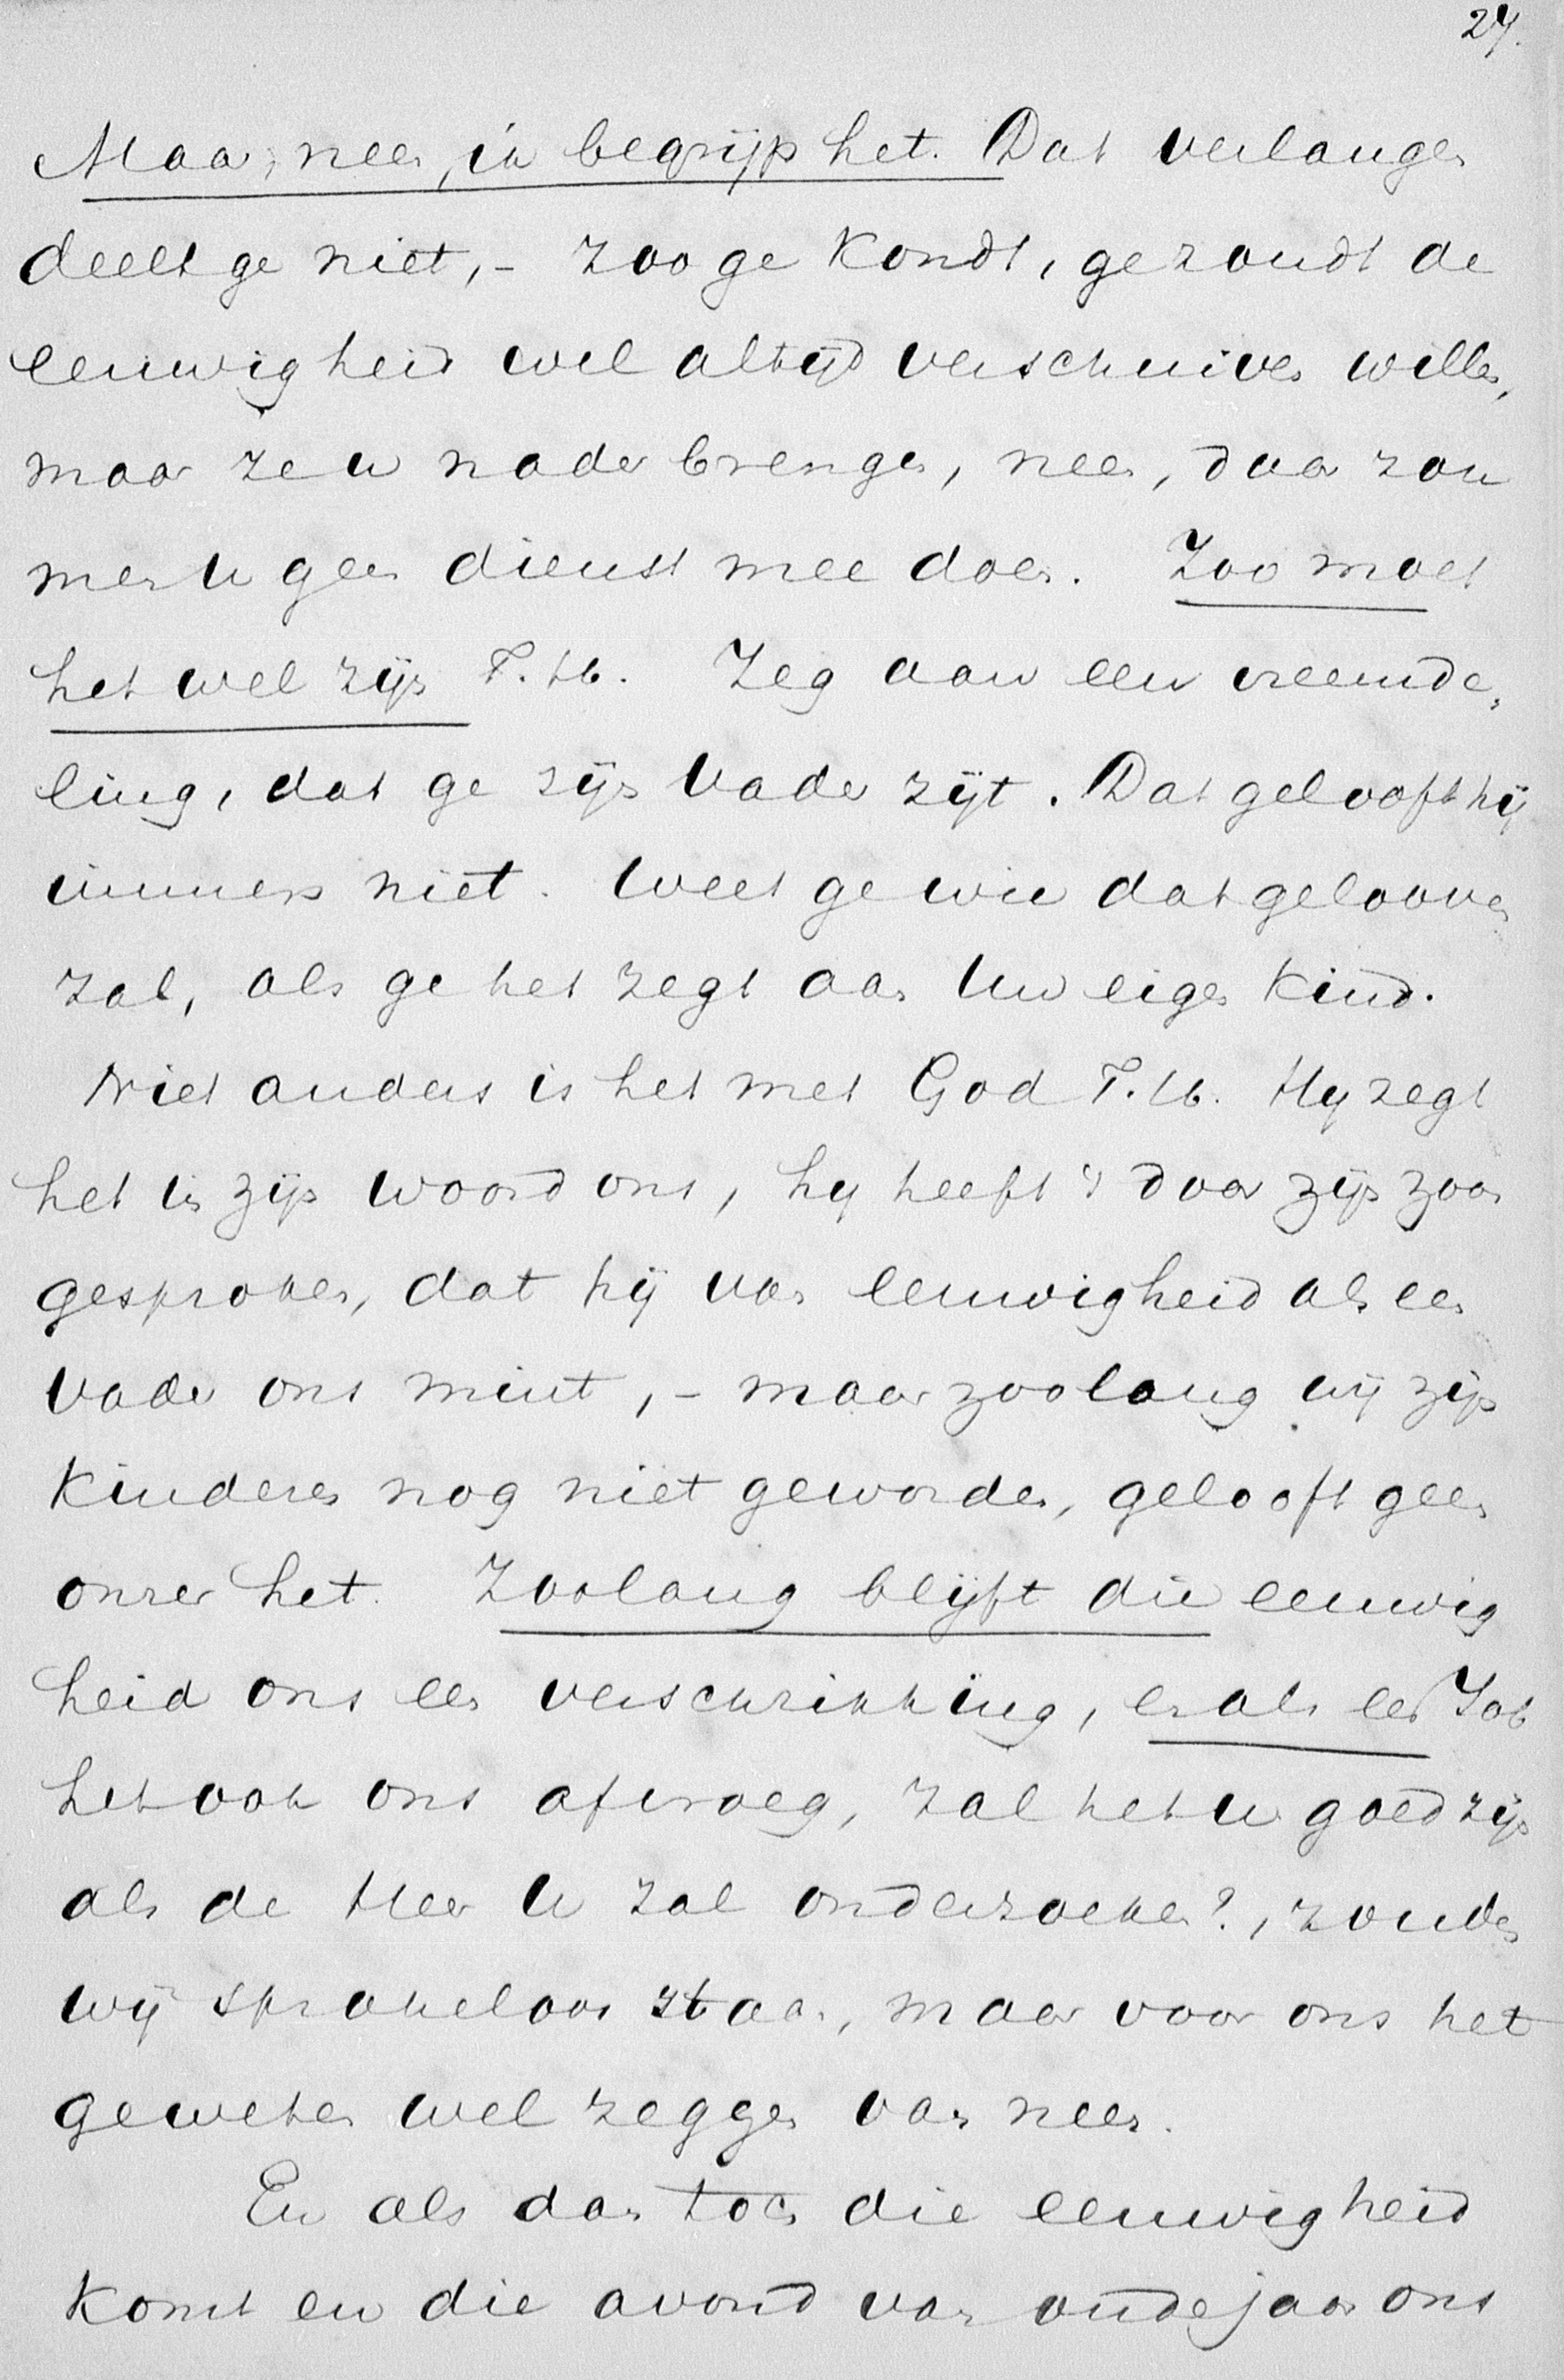 27.
Maar, neen, ik begrijp het. Dat verlangen
deelt ge niet, - zoo ge kondt, ge zoudt de
eeuwigheid wel altijd verschuiven willen,
maar ze u nader brengen, neen, daar zou
men U geen dienst mee doen. Zoo moet
het wel zijn T. H. Zeg aan een vreemde-
ling, dat ge zijn Vader zijt. Dat gelooft hij
immers niet. Weet ge wie dat gelooven
zal, als ge het zegt aan Uw eigen kind.
Niet anders is het met God T. H. Hy zegt
het in zijn woord ons, hy heeft 't door zijn zoon
gesproken, dat hij van eeuwigheid als een
vader ons mint, - maar zoolang wij zijn
kinderen nog niet geworden, gelooft geen
onzer het. Zoolang blijft die eeuwig
heid ons een verschrikking, en als een Job
het ook ons afvroeg, zal het u goed zijn
als de Heer U zal onderzoeken?, zouden
wij sprakeloos staan, maar voor ons het
geweten wel zeggen van neen.
En als dan toch die eeuwigheid
komt en die avond van oudejaar ons